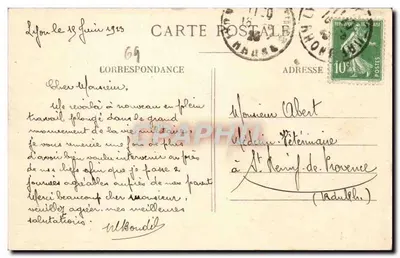 Lyon le 12 Juin 1923
CARTE POSTALE
69
CORRESPONDANCE
ADRESSE
10c
POSTES
Cher Monsieur,
Me revoilà à nouveau en plein
travail plongé dans le grand
mouvement de la vie militaire
je vous remercie une fois de plus
d'avoir bien voulu intervenir auprès
de mes chefs afin que je passe 2
journées agréables auprès de mes parents
Merci beaucoup cher monsieur,
veuillez agréer mes meilleures
salutations.
Monsieur Abert
Médecin Vétérinaire
à St Remy de Provence
(B du Rh)